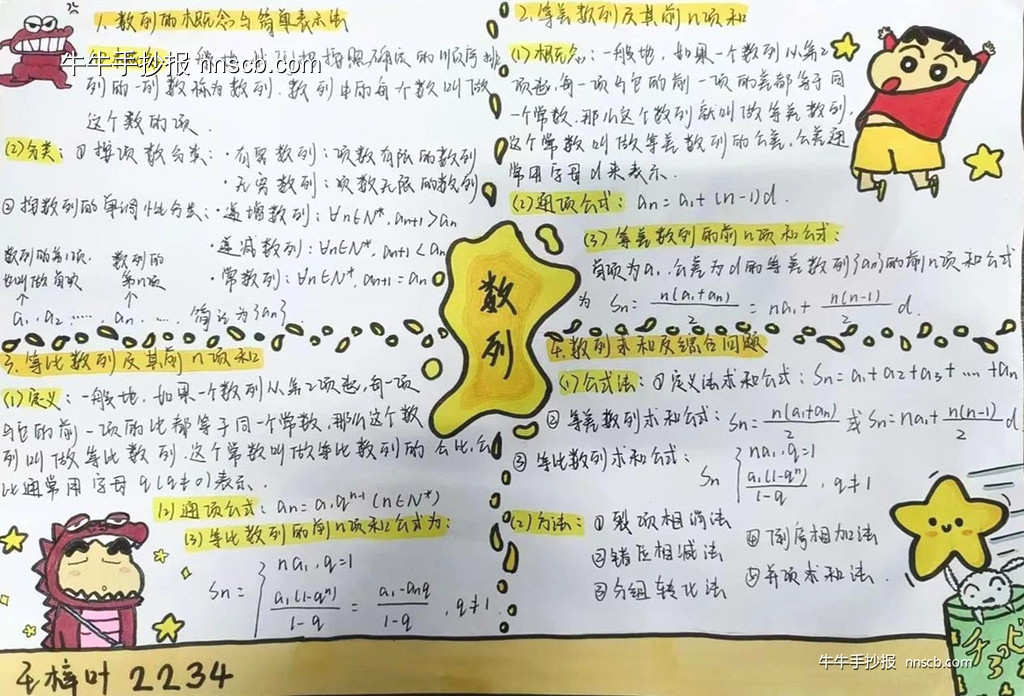 1.数列的概念与简单表示法
一般地,我们把按照确定的顺序排
牛牛手抄报 nnscb.com
列的一列数称为数列.数列中的每个数叫做
这个数的项.
(2)分类:①按项数分类:·有穷数列:项数有限的数列
·无穷数列:项数无限的数列
②按数列的单调性分类:·递增数列:∀n∈N*,an+1>an
·递减数列:∀n∈N*,an+1<an
·常数列:∀n∈N*,an+1=an
数列的第1项,
也叫做首项
数列的
第n项
↑ ↑
a1,a2……,an,…,简记为{an}.
2.等差数列及其前n项和
(1)概念:一般地,如果一个数列从第2
项起,每一项与它的前一项的差都等于同
一个常数,那么这个数列就叫做等差数列,
这个常数叫做等差数列的公差,公差通
常用字母d来表示.
(2)通项公式:an=a1+(n-1)d.
(3)等差数列的前n项和公式:
首项为a1,公差为d的等差数列{an}的前n项和公式
为 Sn=n(a1+an)/2=na1+n(n-1)/2 d.
数列
3.等比数列及其前n项和
(1)定义:一般地,如果一个数列从第2项起,每一项
与它的前一项的比都等于同一个常数,那么这个数
列叫做等比数列.这个常数叫做等比数列的公比,公
比通常用字母q(q≠0)表示.
(2)通项公式:an=a1qⁿ⁻¹(n∈N*)
(3)等比数列的前n项和公式为:
Sn={na1,q=1
a1(1-qⁿ)/1-q=a1-anq/1-q,q≠1
4.数列求和及综合问题
(1)公式法:①定义法求和公式:Sn=a1+a2+a3+…+an
②等差数列求和公式:Sn=n(a1+an)/2 或 Sn=na1+n(n-1)/2 d
③等比数列求和公式:
Sn{na1,q=1
a1(1-qⁿ)/1-q,q≠1
(2)方法:①裂项相消法
②错位相减法
③分组转化法
④倒序相加法
⑤并项求和法.
王梓叶 2234
牛牛手抄报 nnscb.com